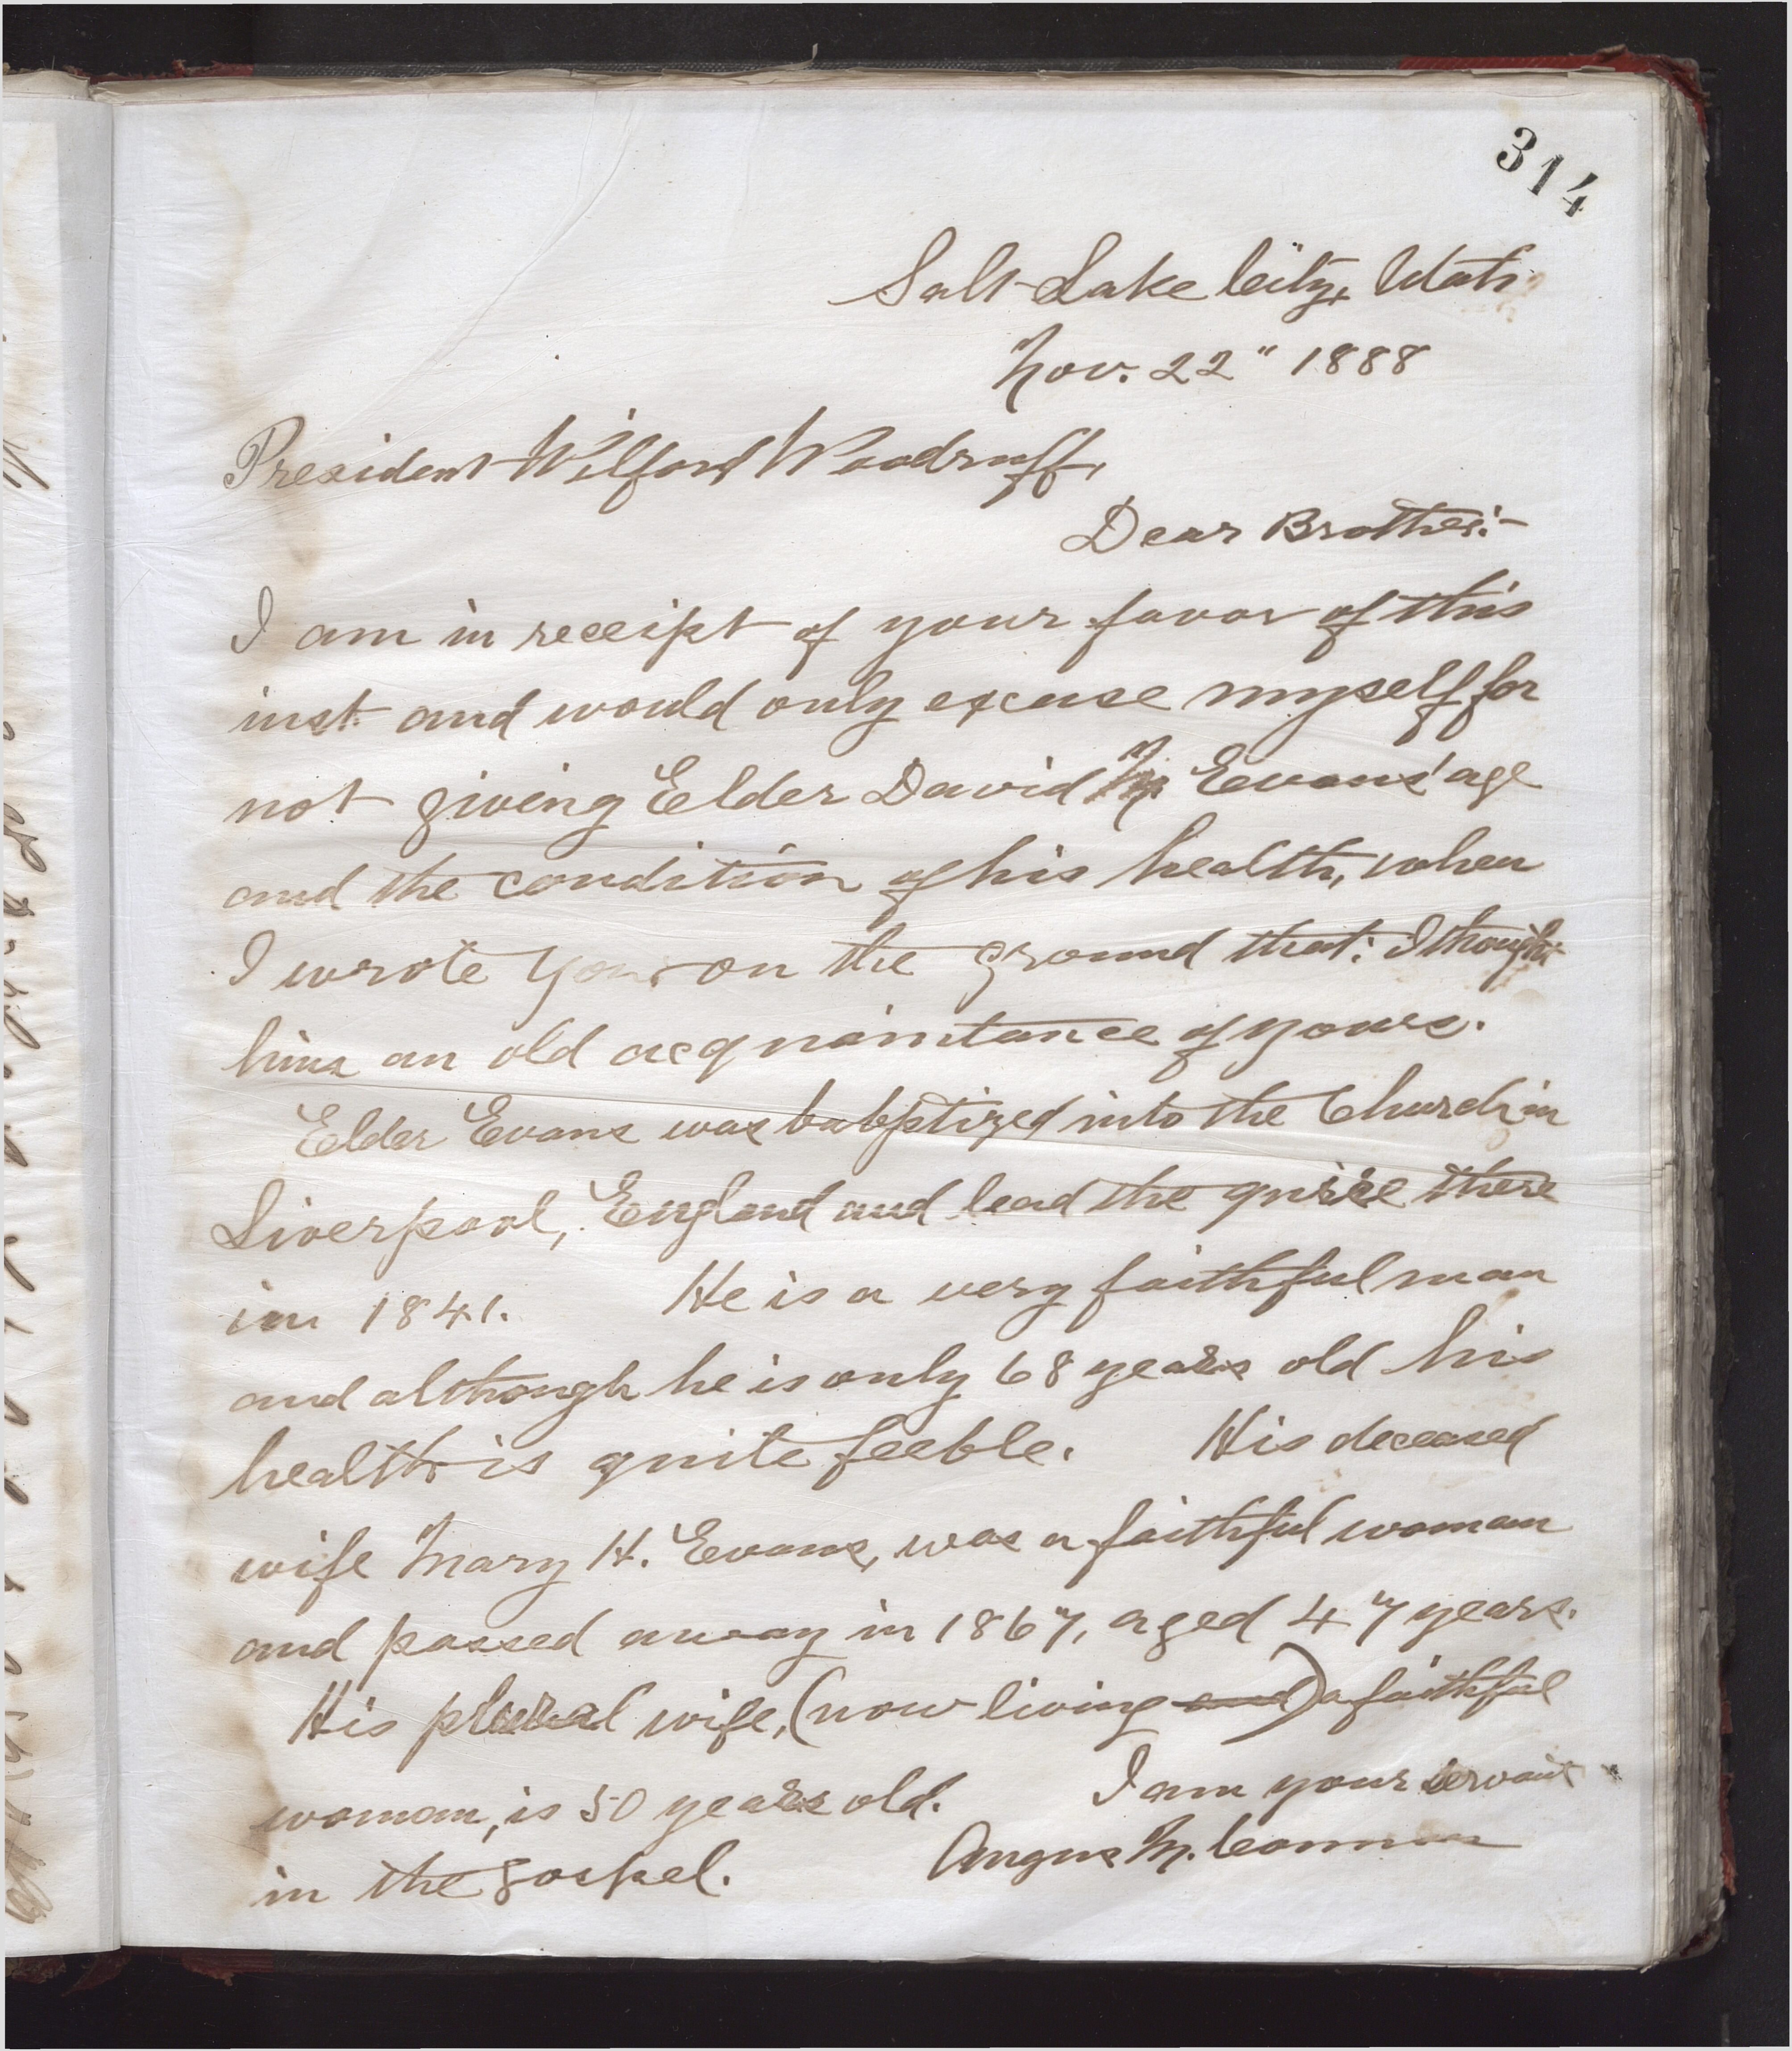 314
Salt Lake City, Utah
Nov. 22" 1888
President Wilford Woodruff,
Dear Brother:-
I am in receipt of your favor of this
inst and would only excuse myself for
not giving Elder David M. Evans' age
and the condition of his health, when
I wrote you, on the ground that: I thought
him an old acquaintance of yours.
Elder Evans was babptized into the Church in
Liverpool, England and lead the quire there
in 1841. He is a very faithful man
and although he is only 68 years old his
health is quite feeble. His deceased
wife Mary H. Evans, was a faithful woman
and passed away in 1867, aged 47 years.
His plural wife, (now living and) a faithful
woman, is 50 years old. I am your servant
in the gospel. Angus M. Cannon